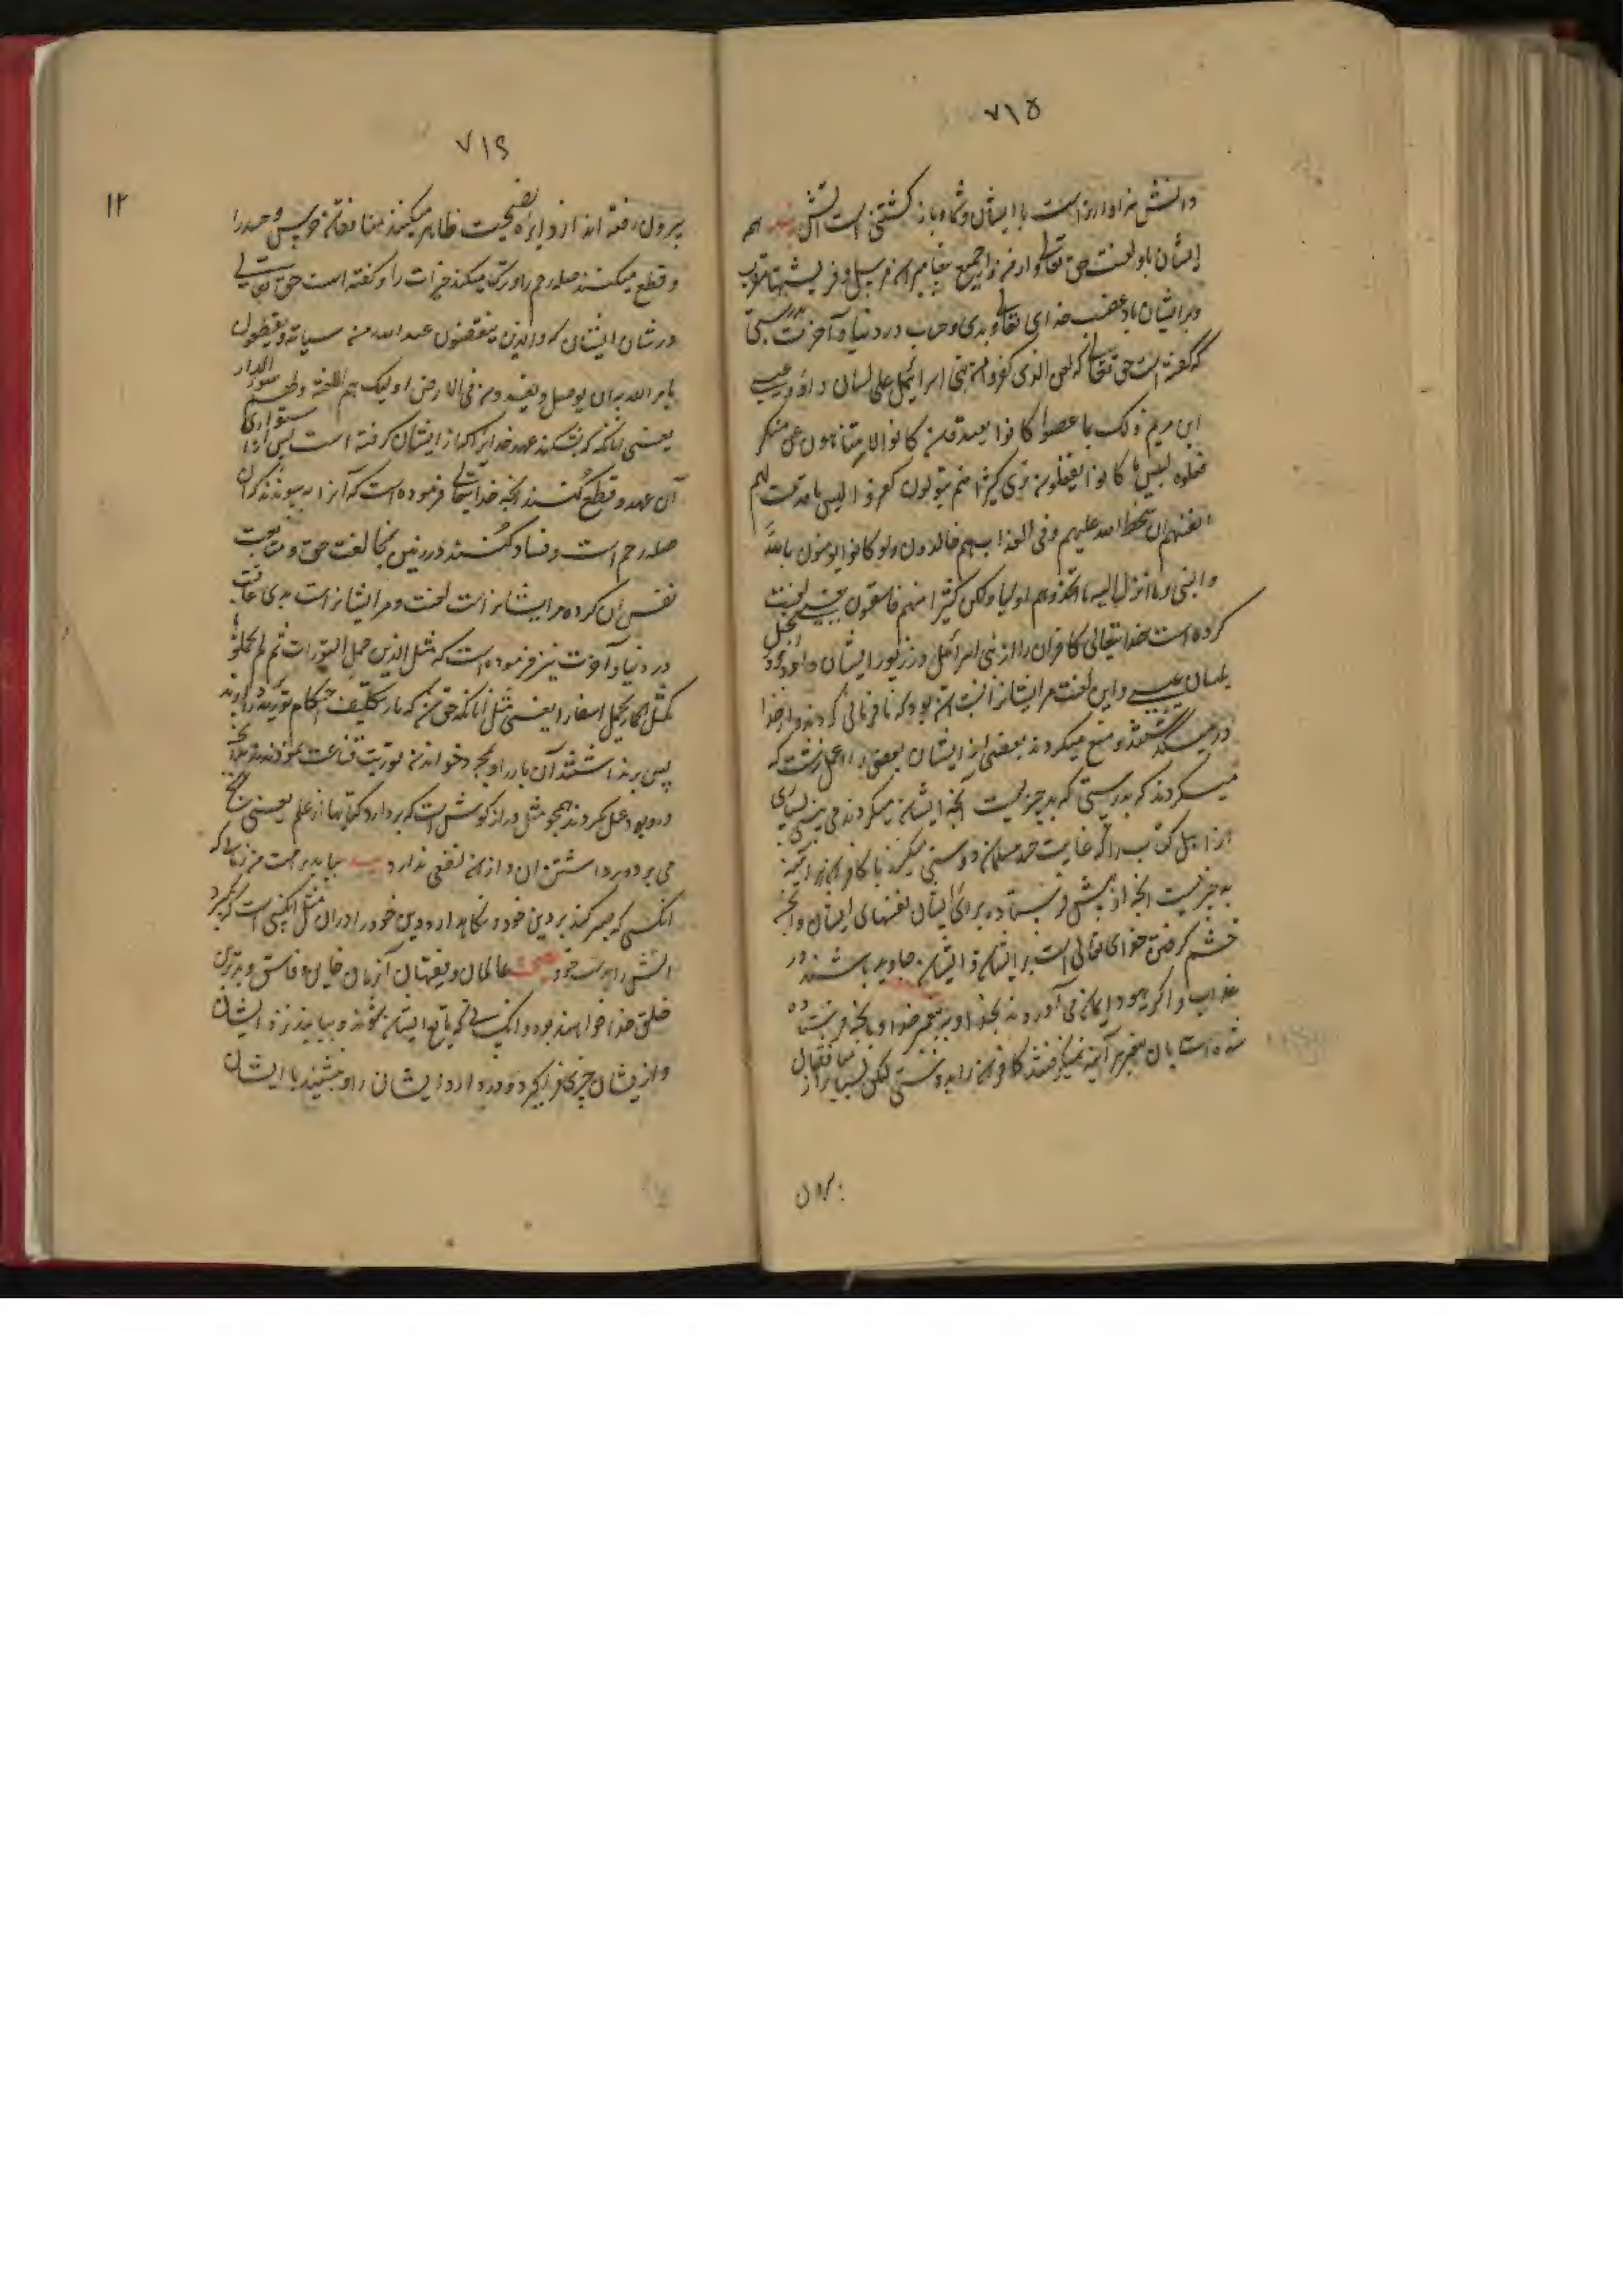 ۷۱۵
دانش سزاوارتر است با ایشان و شما و باز کشتنی است آتش هم
ایشان باد لعنت حق تعالی و از من و از جمیع پیغامبران مرسل و فریشتها مقرب
و بر ایشان باد غضب خدای تعالی و بدی و حساب در دنیا و آخرت بدرستی
که گفته است حق تعالی که لعن الذی کفروا من بنی اسرائیل علی لسان داود و عیسی
ابن مریم ذلک بما عصوا کانوا یعتدون کانوا لا یتناهون عن منکر
فعلوه لبیس ما کانوا یفعلون تری کثیرا منهم یتولون کفروا لبیس ما قدمت لهم
انفسهم ان سخط الله علیهم و فی العذاب هم خالدون ولو کانوا یومنون بالله
والنبی وما انزل الیه ما اتخذوهم اولیا ولکن کثیرا منهم فاسقون یعنی لعنت
کرده است خدایتعالی کافران را از بنی اسرائیل در زبور ایشان داود و در انجیل
بلسان عیسی و این لعنت مر ایشانرا بود که نافرمانی کردند و از خدا
در میگذشتند و منع میکردند بعضی از ایشان بعضی را از عمل زشت که
میکردند که بدرستی که بد چیزیست آنچه ایشان میکردند می بینی بسیاری
از اهل کتاب را که غایت حسد مسلمانان دوستی میکنند با کافران هر آینه
بد چیزیست آنچه از پیش فرستاده برای ایشان نفسهای ایشان و آنچه
خشم کرفتن خدای تعالی است بر ایشان و ایشان جاوید باشند در
عذاب و اکر یهود ایمان می آوردند بخدا و پیغمبر خدا و بآنچه فرستاده
شده است بآن پیغمبر هر آینه نمیکرفتند کافران را بدوستی لکن بسیار از منافقان
بیرون
۷۱۶
۱۲
بیرون رفته اند از دایره نصیحت ظاهر میکنند منافقان حرص و حسد را
و قطع میکنند صله رحم را و ترک میکنند خیرات را و گفته است حق تعالی
در شان ایشان که والذین ینقضون عهد الله من میثاقه و یقطعون
ما امر الله به ان یوصل و یفسدون فی الارض اولیک لهم اللعنة و لهم سوء الدار
یعنی آنانکه بشکنند عهد خدایرا که از ایشان کرفته است پس از استواری
آن عهد و قطع کنند آنچه خدایتعالی فرموده است که آنرا به پیوندند که آن
صله رحم است و فساد کنند در زمین بمخالفت حق و متابعت
نفس آن کرده مر ایشانراست لعنت و مر ایشانراست بدی عاقبت
در دنیا و آخرت نیز فرموده است که مثل الذین حمل التورات ثم لم یحملوها
کمثل الحمار یحمل اسفارا یعنی مثل آنانکه بار تکلیف احکام توریة دادند
پس برنداشتند آن بار را و بمجرد خواندن توریت قناعت نمودند و بآنچه
در و بود عمل نکردند همچو مثل درازکوش است که بردارد کتابها از علم یعنی رنج
می برد و برداشتن آن و از آن نفعی ندارد بیاید بر امت من زمانی که
آنکسی که صبر کند بر دین خود و نکاهدارد دین خود را در آن مثل آنکسی است که بگیرد
آتش را بدست خود عالمان و فقیهان آن زمان خاین و فاسق و بدترین
خلق خدا خواهند بود و آنکسی که تابع ایشان شوند و بیاید نزد ایشان
و از ایشان چیزی فرا کیرد و دوست دارد ایشان را و نشیند با ایشان